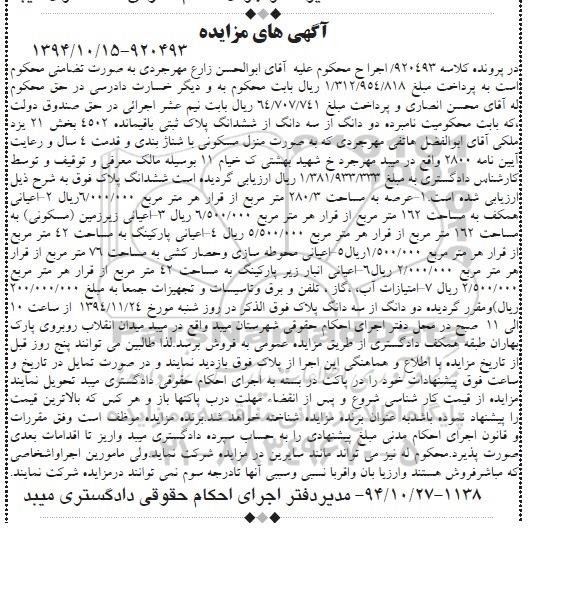 آگهی های مزایده
۹۲۰۴۹۳-۱۳۹۴/۱۰/۱۵
در پرونده کلاسه ۹۲۰۴۹۳/ اجرا ح محکوم علیه آقای ابوالحسن زارع مهرجردی به صورت تضامنی محکوم
است به پرداخت مبلغ ۱/۳۱۲/۹۵۴/۸۱۸ ریال بابت محکوم به و دیگر خسارت دادرسی در حق محکوم
له آقای محسن انصاری و پرداخت مبلغ ۶۴/۷۰۷/۷۴۱ ریال بابت نیم عشر اجرائی در حق صندوق دولت
،که بابت محکومیت نامبرده دو دانگ از سه دانگ از ششدانگ پلاک ثبتی باقیمانده ۴۵۰۲ بخش ۲۱ یزد
ملکی آقای ابوالفضل صائقی مهرجردی که به صورت منزل مسکونی با شناژ بندی و قدمت ۴ سال و رعایت
آیین نامه ۲۸۰۰ واقع در میبد مهرجرد خ شهید بهشتی ک خیام ۱۱ بوسیله مالک معرفی و توقیف و توسط
کارشناس دادگستری به مبلغ ۱/۳۸۱/۹۳۳/۳۳۳ ریال ارزیابی گردیده است ششدانگ پلاک فوق به شرح ذیل
ارزیابی شده است.۱-عرصه به مساحت ۲۸۰/۳ متر مربع از قرار هر متر مربع ۶/۰۰۰/۰۰۰ریال ۲-اعیانی
همکف به مساحت ۱۶۲ متر مربع از قرار هر متر مربع ۶/۵۰۰/۰۰۰ ریال ۳-اعیانی زیرزمین (مسکونی) به
مساحت ۱۶۲ متر مربع از قرار هر متر مربع ۵/۵۰۰/۰۰۰ ریال ۴-اعیانی پارکینگ به مساحت ۴۲ متر مربع
از قرار هر متر مربع ۱/۵۰۰/۰۰۰ریال۵-اعیانی محوطه سازی وحصار کشی به مساحت ۷۶ متر مربع از قرار
هر متر مربع ۲/۰۰۰/۰۰۰ ریال۶-اعیانی انبار زیر پارکینگ به مساحت ۴۲ متر مربع از قرار هر متر مربع
۲/۵۰۰/۰۰۰ ریال ۷-امتیازات آب، گاز ، تلفن و برق وتاسیسات و تجهیزات جمعا به مبلغ ۲۰۰/۰۰۰/۰۰۰
ریال)ومقرر گردیده دو دانگ از سه دانگ پلاک فوق الذکر در روز شنبه مورخ ۱۳۹۴/۱۱/۲۴ از ساعت ۱۰
الی ۱۱ صبح در محل دفتر اجرای احکام حقوقی شهرستان میبد واقع در میبد میدان انقلاب روبروی پارک
بهاران طبقه همکف دادگستری از طریق مزایده عمومی به فروش برسد.لذا طالبین می توانند پنج روز قبل
از تاریخ مزایده با اطلاع و هماهنگی این اجرا از پلاک فوق بازدید نمایند و در صورت تمایل در تاریخ و
ساعت فوق پیشنهادات خود را در پاکت در بسته به اجرای احکام حقوقی دادگستری میبد تحویل نمایند
مزایده از قیمت کار شناسی شروع و پس از انقضاء مهلت درب پاکتها باز و هر کس که بالاترین قیمت
را پیشنهاد نموده باشدبه عنوان برنده مزایده شناخته خواهد شد.برنده مزایده موظف است وفق مقررات
و قانون اجرای احکام مدنی مبلغ پیشنهادی را به حساب سپرده دادگستری میبد واریز تا اقدامات بعدی
صورت پذیرد.محکوم له نیز می تواند مانند سایرین در مزایده شرکت نماید.ولی مامورین اجراواشخاصی
که مباشرفروش هستند وارزیا بان واقربا نسبی وسببی آنها تادرجه سوم نمی توانند درمزایده شرکت نمایند.
۱۱۳۸-۹۴/۱۰/۲۷- مدیردفتر اجرای احکام حقوقی دادگستری میبد